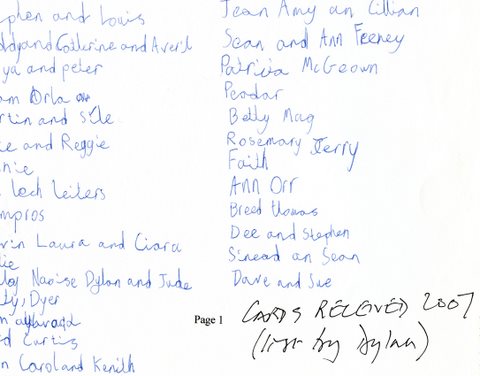 phen and Louis
and Catherine and Averil
ya and peter
am Orla
rtin and Síle
e and Reggie
nie
loch leiters
mpros
vin Laura and Ciara
lie
Naoise Dylan and Jude
ty, Dyer
d Curtis
n Carol and Kenith
Jean Amy an Cillian
Sean and Ann Feeney
Patricia McGeown
Peadar
Betty Mag
Rosemary Jerry
Faith
Ann Orr
Breed thomas
Dee and Stephen
Sinead an Sean
Dave and Sue
Page 1
CARDS RECEIVED 2007
(list by Dylan)